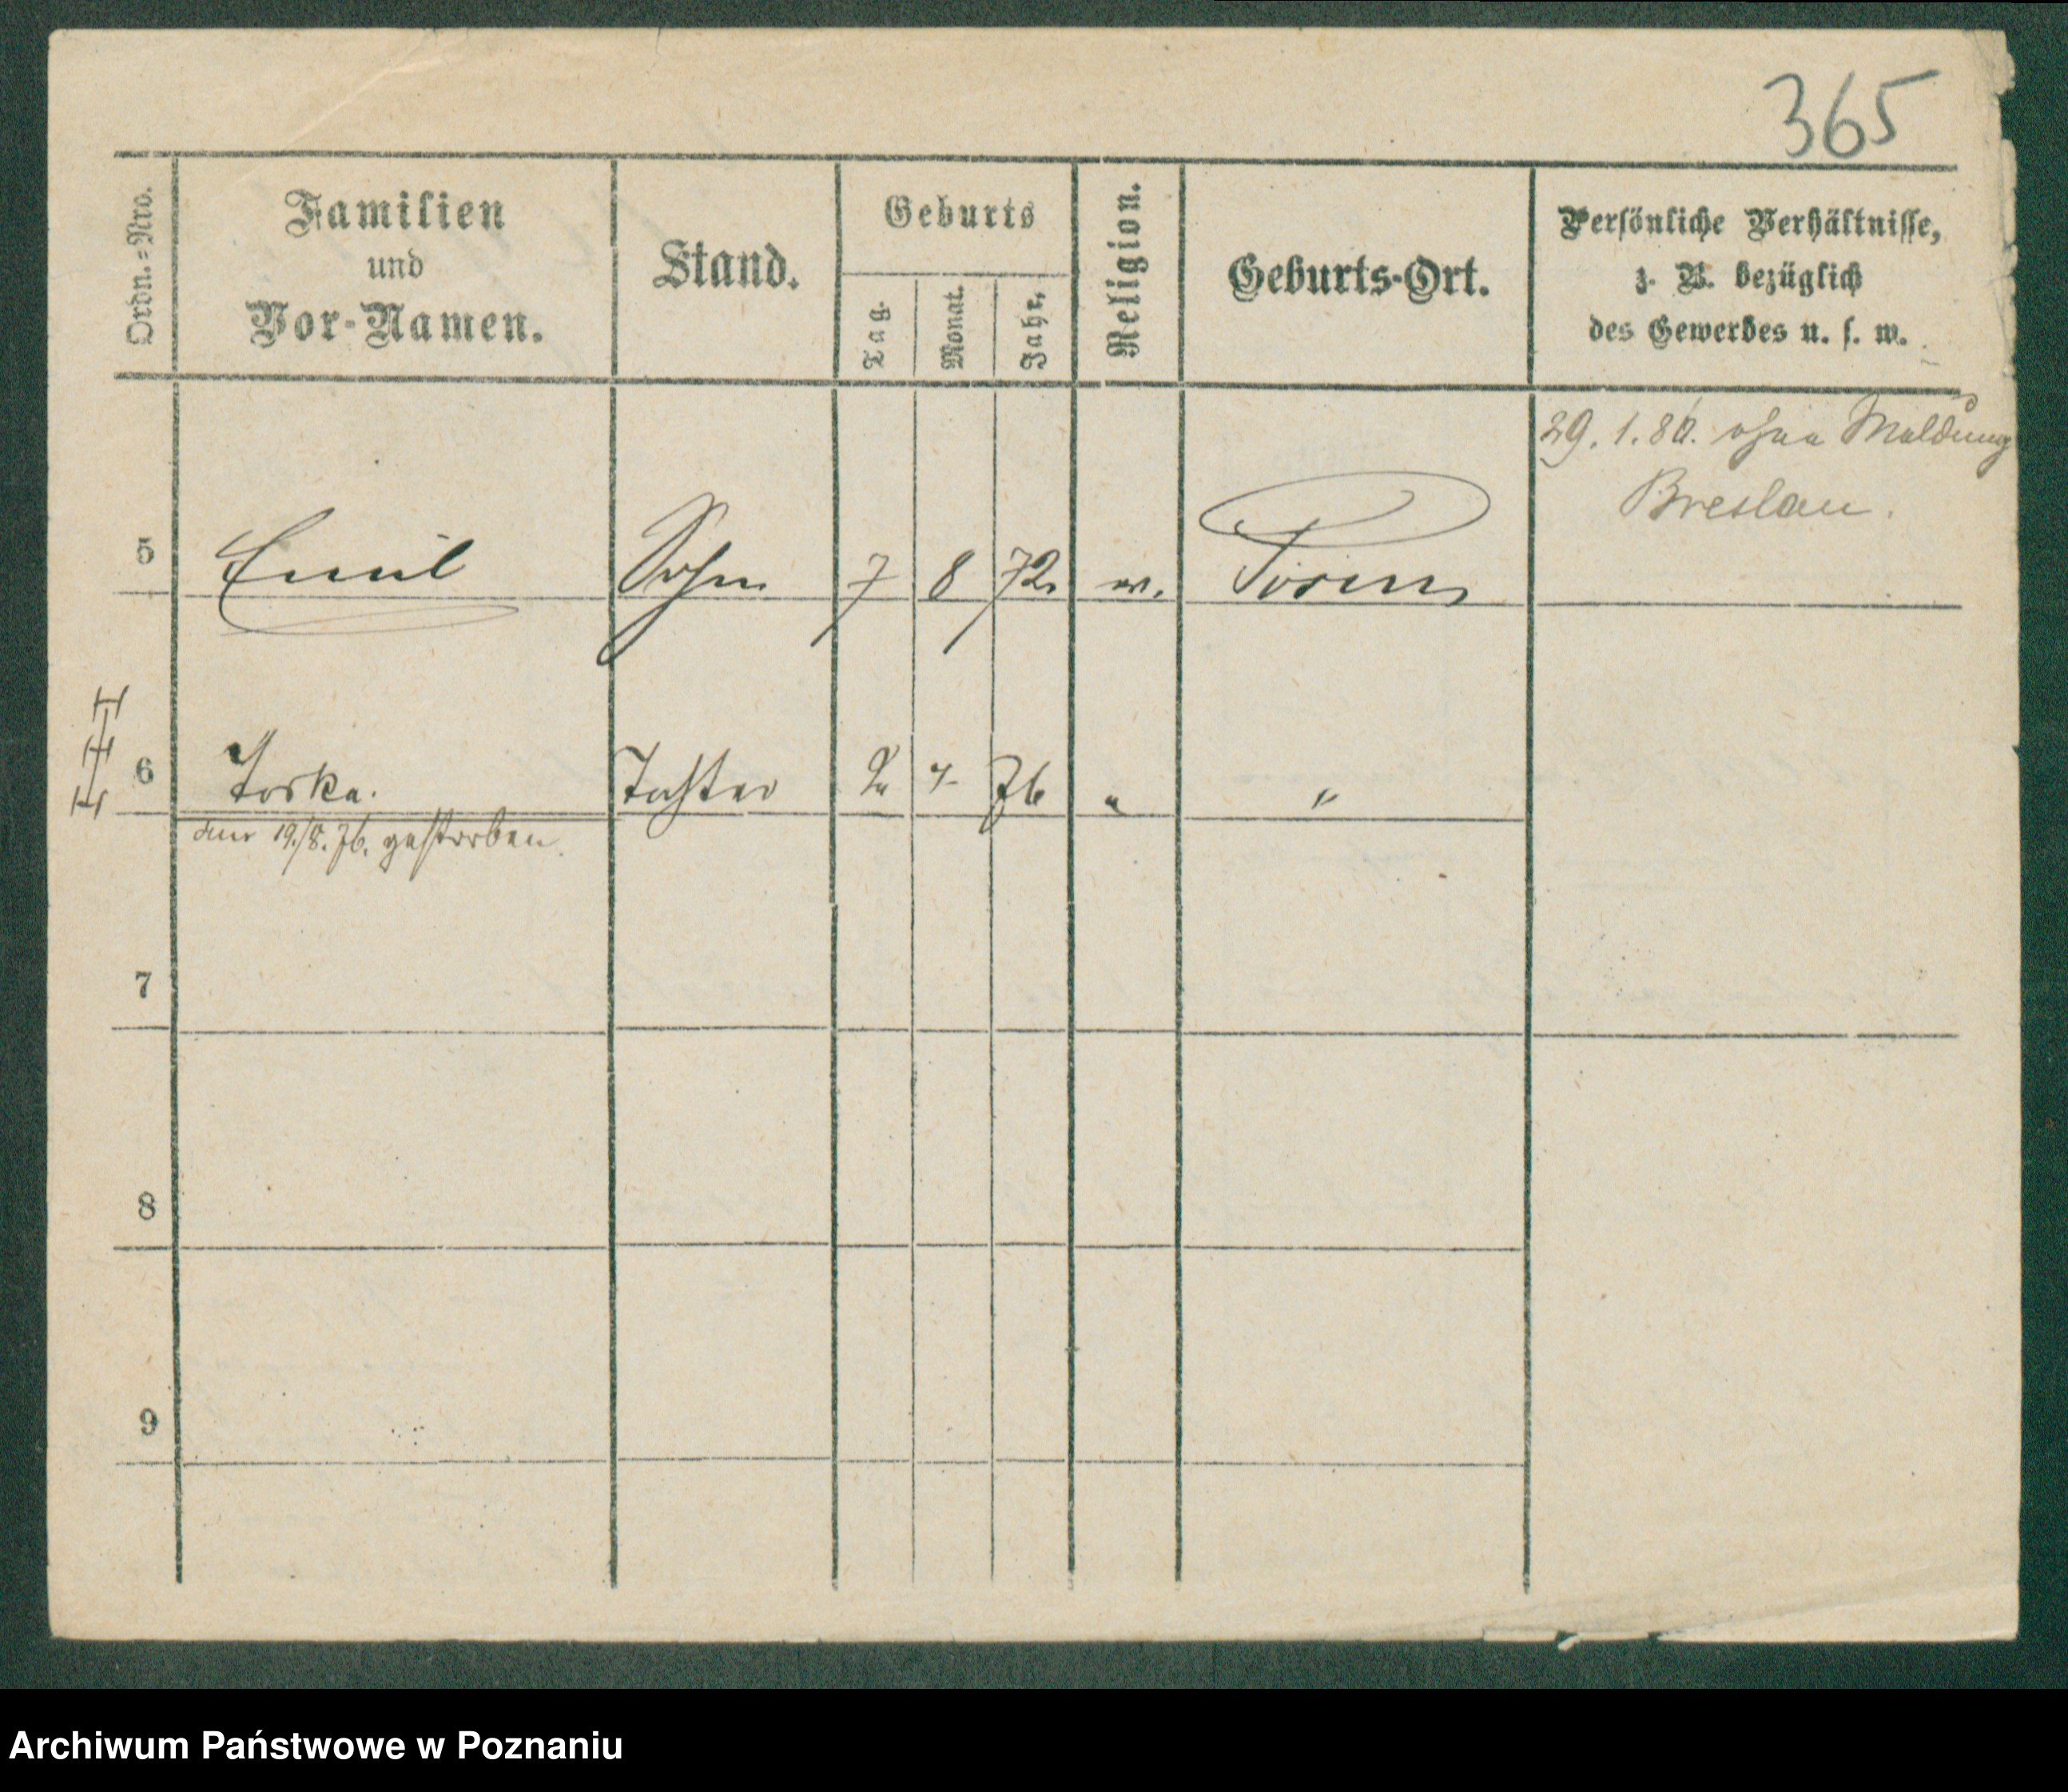 365
Ordn.-Nro.
Familien
und
Vor-Namen.
Stand.
Geburts
Tag.
Monat.
Jahr.
Religion.
Geburts-Ort.
Persönliche Verhältnisse,
z. B. bezüglich
des Gewerbes u. s. w.
29. 1. 80. ohne Meldung
Breslau.
5 Emil Sohn 7 8 72 Posen
6 Toska. Tochter 2 76 " "
am 19./8. 76. gestorben.
7
8
9
Archiwum Państwowe w Poznaniu